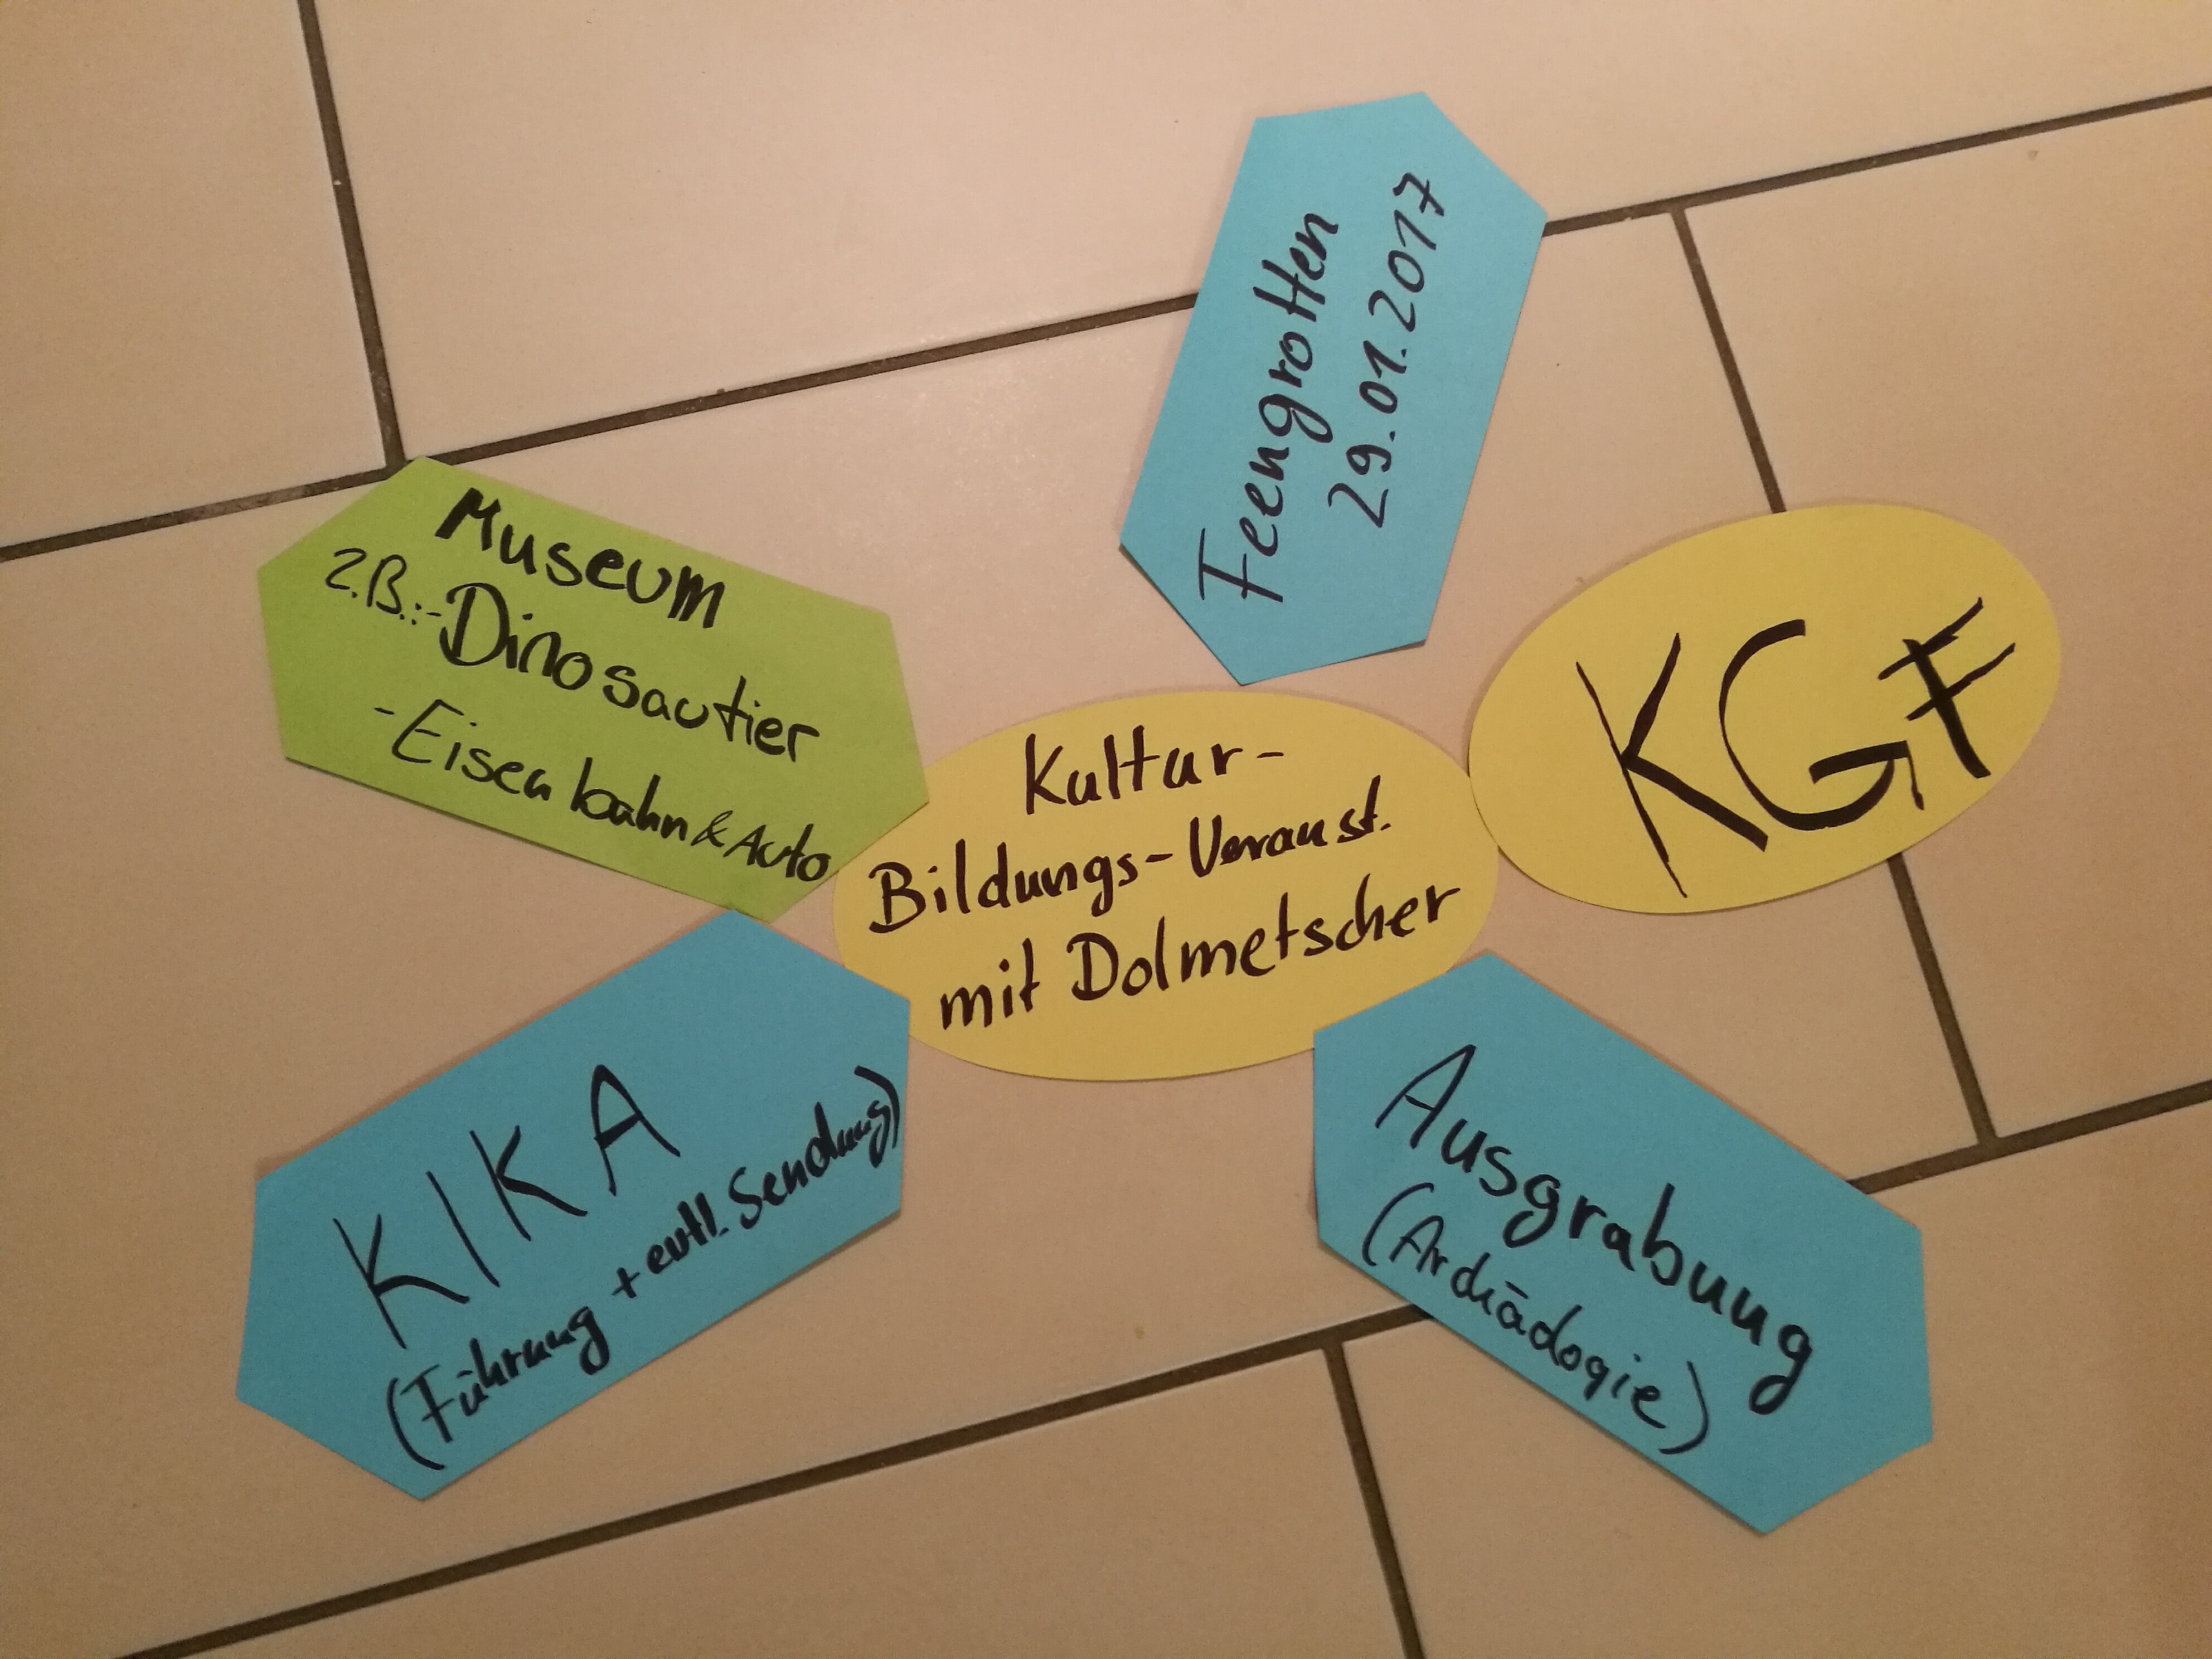 Feengrotten
29.01.2017
Museum
z.B.:-Dinosautier
-Eisenbahn & Auto
KGF
Kultur-
Bildungs-Veranst.
mit Dolmetscher
KIKA
(Führung + evtl. Sendung)
Ausgrabung
(Archäologie)